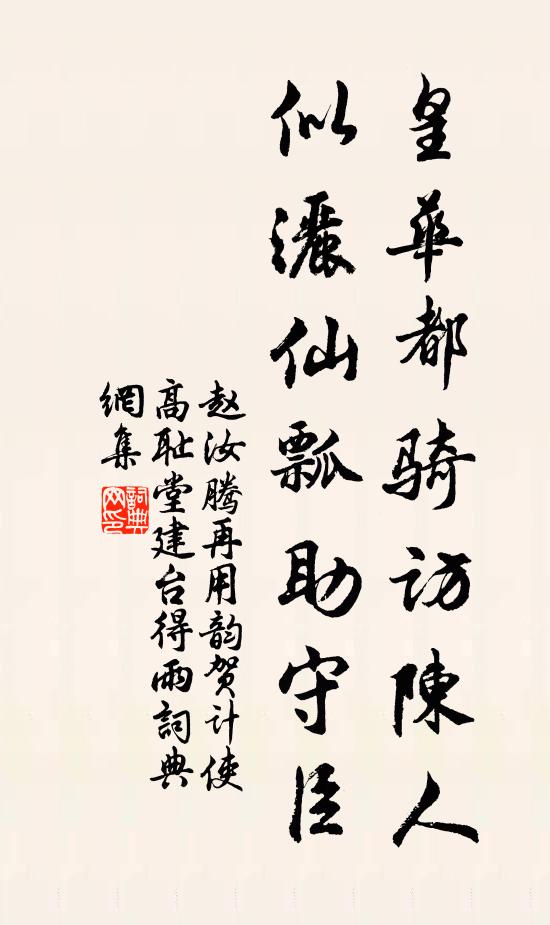 皇華都骑访陳人
似灑仙瓢助守臣
赵汝腾再用韵贺计使
高耻堂建台得雨詞典
網集
詞典
网印